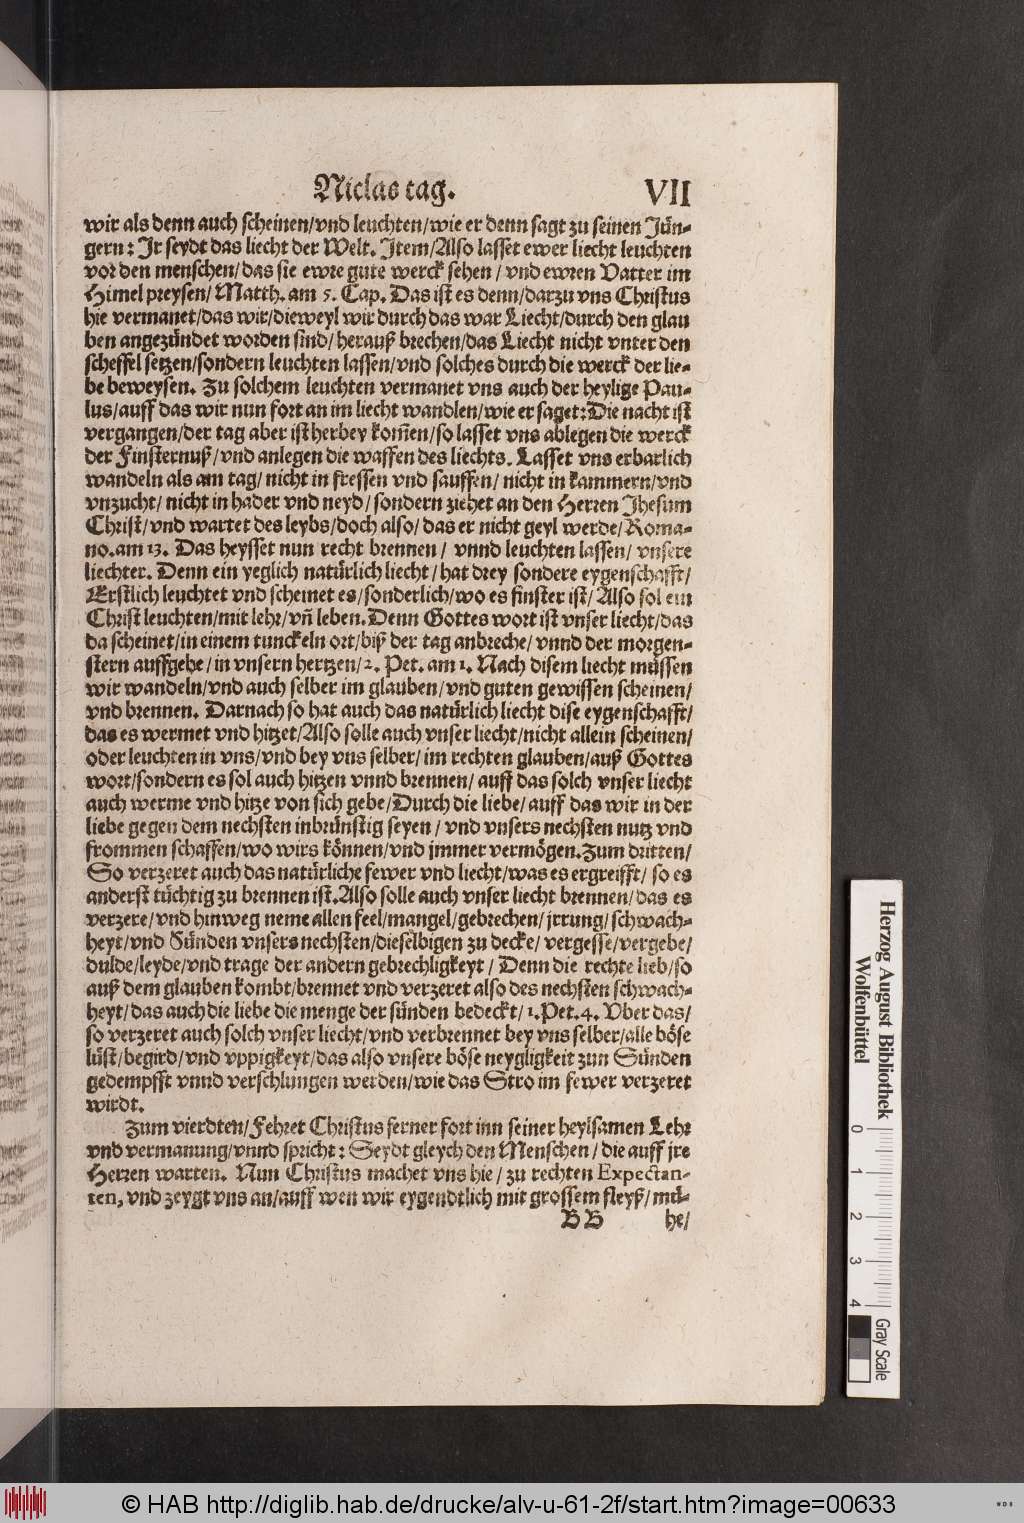 Niclas tag. VII
wir als denn auch scheinen/vnd leuchten/wie er denn sagt zu seinen Jün-
gern: Jr seydt das liecht der Welt. Jtem/Also lasset ewer liecht leuchten
vor den menschen/das sie ewre gute werck sehen/vnd ewren Vatter im
Himel preysen/Matth. am 5. Cap. Das ist es denn/darzu vns Christus
hie vermanet/das wir/dieweyl wir durch das war Liecht/durch den glau
ben angezündet worden sind/herauß brechen/das Liecht nicht vnter den
scheffel setzen/sondern leuchten lassen/vnd solches durch die werck der lie-
be beweysen. Zu solchem leuchten vermanet vns auch der heylige Pau-
lus/auff das wir nun fort an im liecht wandlen/wie er saget: Die nacht ist
vergangen/der tag aber ist herbey kom̃en/so lasset vns ablegen die werck
der Finsternuß/vnd anlegen die waffen des liechts. Lasset vns erbarlich
wandeln als am tag/nicht in fressen vnd sauffen/nicht in kammern/vnd
vnzucht/nicht in hader vnd neyd/sondern ziehet an den Herren Jhesum
Christ/vnd wartet des leybs/doch also/das er nicht geyl werde/Roma-
no. am 13. Das heysset nun recht brennen/vnnd leuchten lassen/vnsere
liechter. Denn ein yeglich natürlich liecht/hat drey sondere eygenschafft/
Erstlich leuchtet vnd scheinet es/sonderlich/wo es finster ist/Also sol ein
Christ leuchten/mit lehr/vñ leben. Denn Gottes wort ist vnser liecht/das
da scheinet/in einem tunckeln ort/biß der tag anbreche/vnnd der morgen-
stern auffgehe/in vnsern hertzen/2. Pet. am 1. Nach disem liecht müssen
wir wandeln/vnd auch selber im glauben/vnd guten gewissen scheinen/
vnd brennen. Darnach so hat auch das natürlich liecht dise eygenschafft/
das es wermet vnd hitzet/Also solle auch vnser liecht/nicht allein scheinen/
oder leuchten in vns/vnd bey vns selber/im rechten glauben/auß Gottes
wort/sondern es sol auch hitzen vnnd brennen/auff das solch vnser liecht
auch werme vnd hitze von sich gebe/Durch die liebe/auff das wir in der
liebe gegen dem nechsten inbrünstig seyen/vnd vnsers nechsten nutz vnd
frommen schaffen/wo wirs können/vnd jmmer vermögen. Zum dritten/
So verzeret auch das natürliche fewer vnd liecht/was es ergreifft/so es
anderst tüchtig zu brennen ist. Also solle auch vnser liecht brennen/das es
verzere/vnd hinweg neme allen feel/mangel/gebrechen/jrrung/schwach-
heyt/vnd Sünden vnsers nechsten/dieselbigen zu decke/vergesse/vergebe/
dulde/leyde/vnd trage der andern gebrechligkeyt/Denn die rechte lieb/so
auß dem glauben kombt/brennet vnd verzeret also des nechsten schwach-
heyt/das auch die liebe die menge der sünden bedeckt/1. Pet. 4. Vber das/
so verzeret auch solch vnser liecht/vnd verbrennet bey vns selber/alle böse
lüst/begird/vnd vppigkeyt/das also vnsere böse neygligkeit zun Sünden
gedempfft vnnd verschlungen werden/wie das Stro im fewer verzeret
wirdt.
Zum vierdten/Fehret Christus ferner fort inn seiner heylsamen Lehr
vnd vermanung/vnnd spricht: Seydt gleych den Menschen/die auff jre
Herren warten. Nun Christus machet vns hie/zu rechten Expectan-
ten, vnd zeygt vns an/auff wen wir eygendtlich mit grossem fleyß/mü-
BB he/
Herzog August Bibliothek
Wolfenbüttel
0 1 2 3 4
Gray Scale
© HAB http://diglib.hab.de/drucke/alv-u-61-2f/start.htm?image=00633